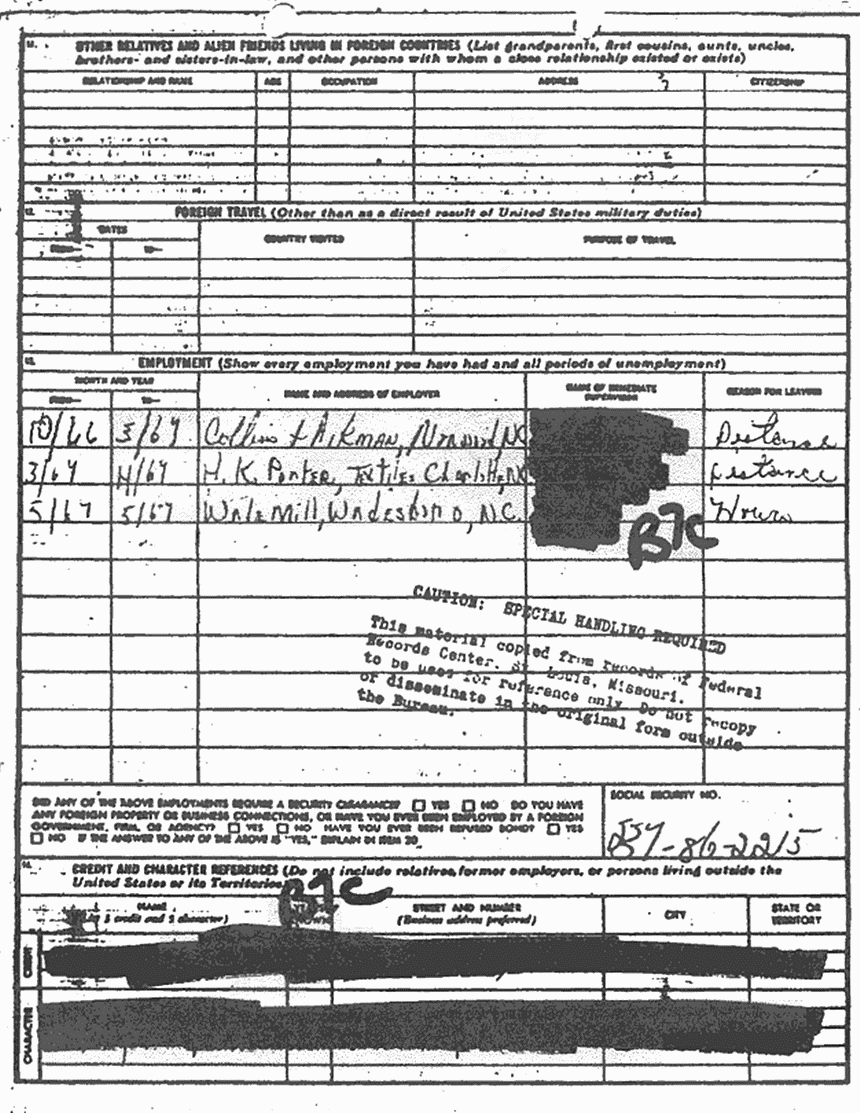 11. OTHER RELATIVES AND ALIEN FRIENDS LIVING IN FOREIGN COUNTRIES (List grandparents, first cousins, aunts, uncles,
brothers- and sisters-in-law, and other persons with whom a close relationship existed or exists)
RELATIONSHIP AND NAME AGE OCCUPATION ADDRESS CITIZENSHIP
12. FOREIGN TRAVEL (Other than as a direct result of United States military duties)
DATES
FROM— TO— COUNTRY VISITED PURPOSE OF TRAVEL
13. EMPLOYMENT (Show every employment you have had and all periods of unemployment)
MONTH AND YEAR
FROM— TO— NAME AND ADDRESS OF EMPLOYER NAME OF IMMEDIATE SUPERVISOR REASON FOR LEAVING
10/66 3/67 Collins & Aikman, Norwood, NC Distance
3/67 4/67 H. K. Porter, Textiles Charlotte, NC Distance
5/67 5/67 Mill, Wadesboro, N.C. Hours
B7C
CAUTION: SPECIAL HANDLING REQUIRED
This material copied from records of Federal
Records Center, St. Louis, Missouri.
to be used for reference only. Do not recopy
or disseminate in the original form outside
the Bureau.
DID ANY OF THE ABOVE EMPLOYMENTS REQUIRE A SECURITY CLEARANCE? YES NO DO YOU HAVE
ANY FOREIGN PROPERTY OR BUSINESS CONNECTIONS, OR HAVE YOU EVER BEEN EMPLOYED BY A FOREIGN
GOVERNMENT, FIRM, OR AGENCY? YES NO HAVE YOU EVER BEEN REFUSED BOND? YES
NO IF THE ANSWER TO ANY OF THE ABOVE IS "YES," EXPLAIN IN ITEM 20
SOCIAL SECURITY NO.
14. CREDIT AND CHARACTER REFERENCES (Do not include relatives, former employers, or persons living outside the
United States or its Territories)
B7C
NAME
credit and 5 character)
STREET AND NUMBER
(Business address preferred)
CITY
STATE OR
TERRITORY
CREDIT
CHARACTER